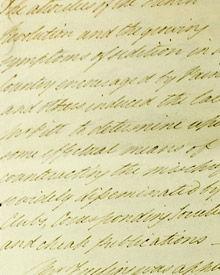 the atrocities of the French
Revolution and the growing
symptoms of sedition in
Country encouraged by Pain
and others induced the
Mr Pitt to determine
some effectual means of
counteracting the mischief
widely disseminated by
Clubs, Corresponding Societ
and cheap publications
Mr was